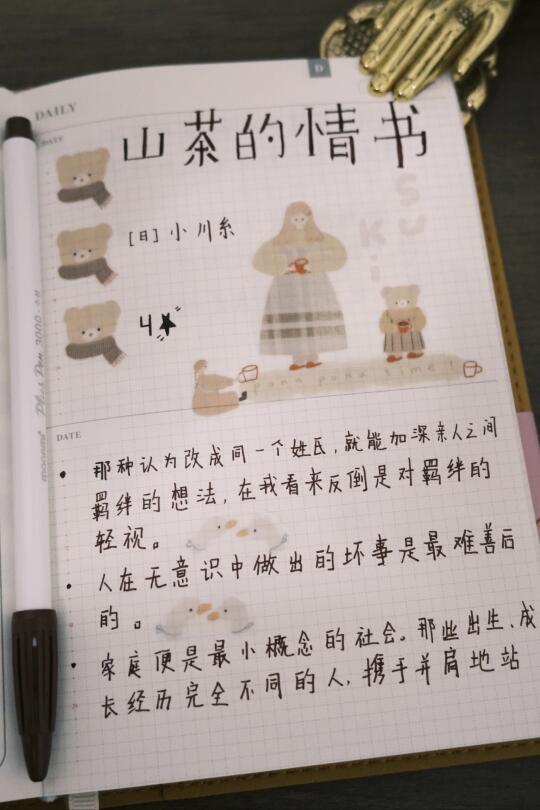 D
DAILY
DATE
山茶的情书
[日]小川糸
4★
Suki
pona pona time!
DATE
• 那种认为改成同一个姓氏,就能加深亲人之间
羁绊的想法,在我看来反倒是对羁绊的
轻视。
• 人在无意识中做出的坏事是最难善后
的。
• 家庭便是最小概念的社会。那些出生、成
长经历完全不同的人,携手并肩地站
monami Plus Pen 3000